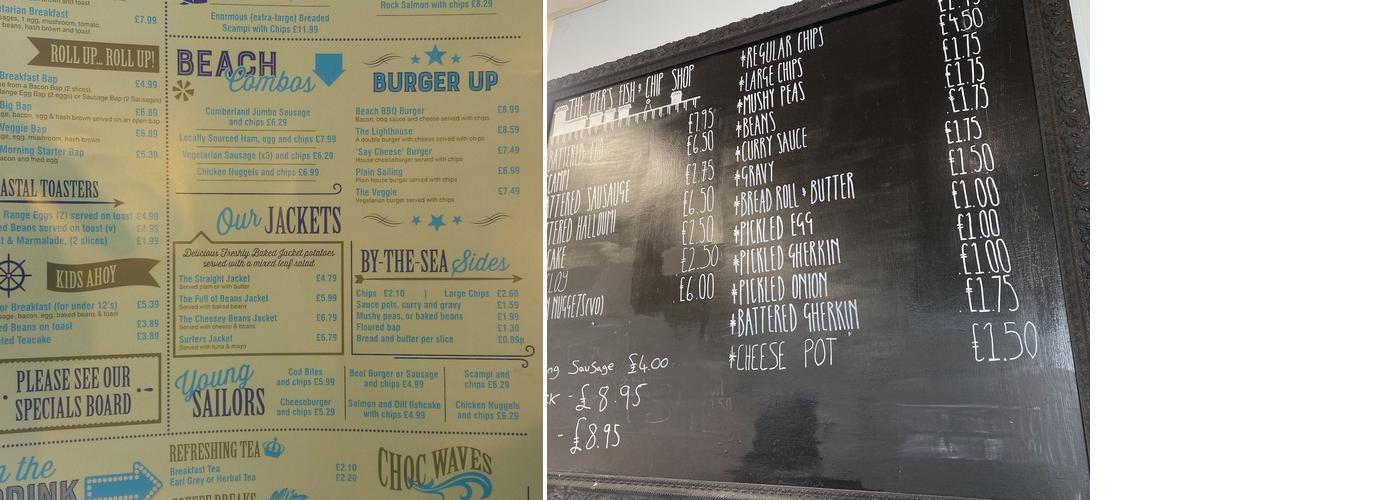 Rock Salmon with chips £8.29
Enormous (extra-large) Breaded
Scampi with Chips £11.99
etarian Breakfast £7.99
sages, 1 egg, mushroom, tomato,
beans, hash brown and toast
ROLL UP... ROLL UP!
Breakfast Bap £4.99
e from a Bacon Bap (2 slices),
Range Egg Bap (2 eggs) or Sausage Bap (2 Sausages)
Big Bap £6.89
ge, bacon, egg & hash brown served on an open bap
Veggie Bap £6.89
ge, egg, mushroom, hash brown
Morning Starter Bap £5.39
acon and fried egg
ASTAL TOASTERS
Range Eggs (2) served on toast £4.99
ed Beans served on toast (v) £4.99
t & Marmalade, (2 slices) £1.99
KIDS AHOY
or Breakfast (for under 12's) £5.39
sage, bacon, egg, baked beans & toast
ed Beans on toast £3.89
sted Teacake £3.89
PLEASE SEE OUR
SPECIALS BOARD
BEACH
Combos
Cumberland Jumbo Sausage
and chips £6.29
Locally Sourced Ham, egg and chips £7.99
Vegetarian Sausage (x3) and chips £6.29
Chicken Nuggets and chips £6.99
BURGER UP
Beach BBQ Burger £8.99
Bacon, bbq sauce and cheese served with chips
The Lighthouse £8.59
A double burger with cheese served with chips
'Say Cheese' Burger £7.49
House cheeseburger served with chips
Plain Sailing £6.99
Plain house burger served with chips
The Veggie £7.49
Vegetarian burger served with chips
Our JACKETS
Delicious Freshly Baked Jacket potatoes
served with a mixed leaf salad
The Straight Jacket £4.79
Served plain or with butter
The Full of Beans Jacket £5.99
Served with baked beans
The Cheesey Beans Jacket £6.79
Served with cheese & beans
Surfers Jacket £6.79
Served with tuna & mayo
BY-THE-SEA Sides
Chips £2.10 | Large Chips £2.60
Sauce pots, curry and gravy £1.59
Mushy peas, or baked beans £1.99
Floured bap £1.30
Bread and butter per slice £0.89p
Young
SAILORS
Cod Bites
and chips £5.99
Cheeseburger
and chips £5.29
Beef Burger or Sausage
and chips £4.99
Salmon and Dill fishcake
with chips £4.99
Scampi and
chips £6.29
Chicken Nuggets
and chips £6.29
n the
DRINK
REFRESHING TEA
Breakfast Tea £2.10
Earl Grey or Herbal Tea £2.20
COFFEE BREAKS
CHOC WAVES
THE PIER'S FISH & CHIP SHOP
£7.95
BATTERED £6.50
SCAMPI £2.75
TTERED SAUSAUGE £6.50
TTERED HALLOUMI £2.50
CAKE £2.50
£6.00
NUGGETS(VO)
ng Sausage £4.00
CK - £8.95
- £8.95
£4.50
*REGULAR CHIPS £1.75
*LARGE CHIPS £1.75
*MUSHY PEAS £1.75
*BEANS £1.75
*CURRY SAUCE £1.50
*GRAVY £1.00
*BREAD ROLL & BUTTER £1.00
*PICKLED EGG £1.00
*PICKLED GHERKIN £1.75
*PICKLED ONION £1.50
*BATTERED GHERKIN
*CHEESE POT